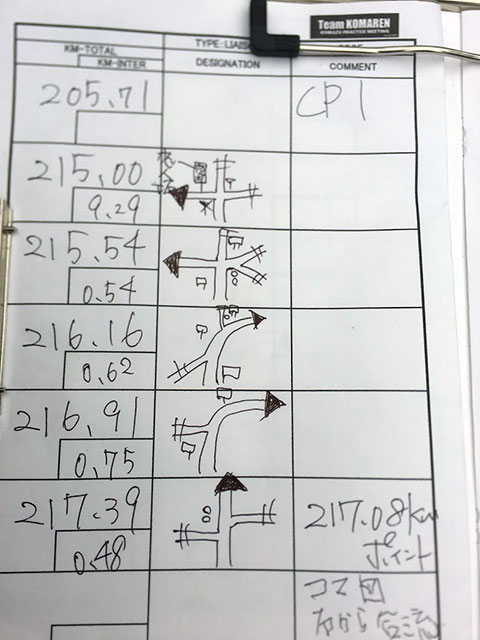 Team KOMAREN
KOMAZU PRACTICE MEETING
KM-TOTAL
KM-INTER
DESIGNATION
COMMENT
205.71
CP1
215.00
9.29
215.54
0.54
216.16
0.62
216.91
0.75
217.39
0.48
217.08km
ポイント
コマ図